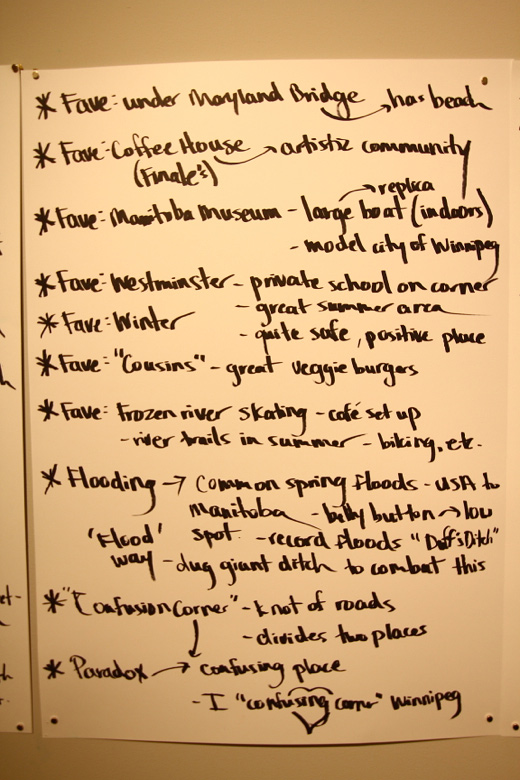 * Fave: under Maryland Bridge → has beach
* Fave: Coffee House → artistic community
(Finale's)
→ replica
* Fave: Manitoba Museum - large boat (indoors)
- model city of Winnipeg
* Fave: Westminster - private school on corner
- great summer area
* Fave: Winter
- quite safe, positive place
* Fave: "Cousins" - great veggie burgers
* Fave: Frozen river skating - café set up
- river trails in summer - biking, etc.
* Flooding → Common spring floods - USA to
Manitoba - belly button → low
'Flood' spot - record floods "Duff's Ditch"
way - dug giant ditch to combat this
* "Confusion Corner" - knot of roads
- divides two places
* Paradox → confusing place
- I "confusing corner" Winnipeg